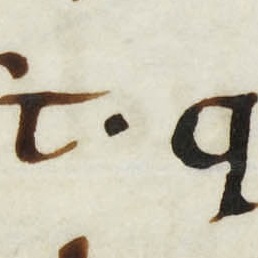 t. q